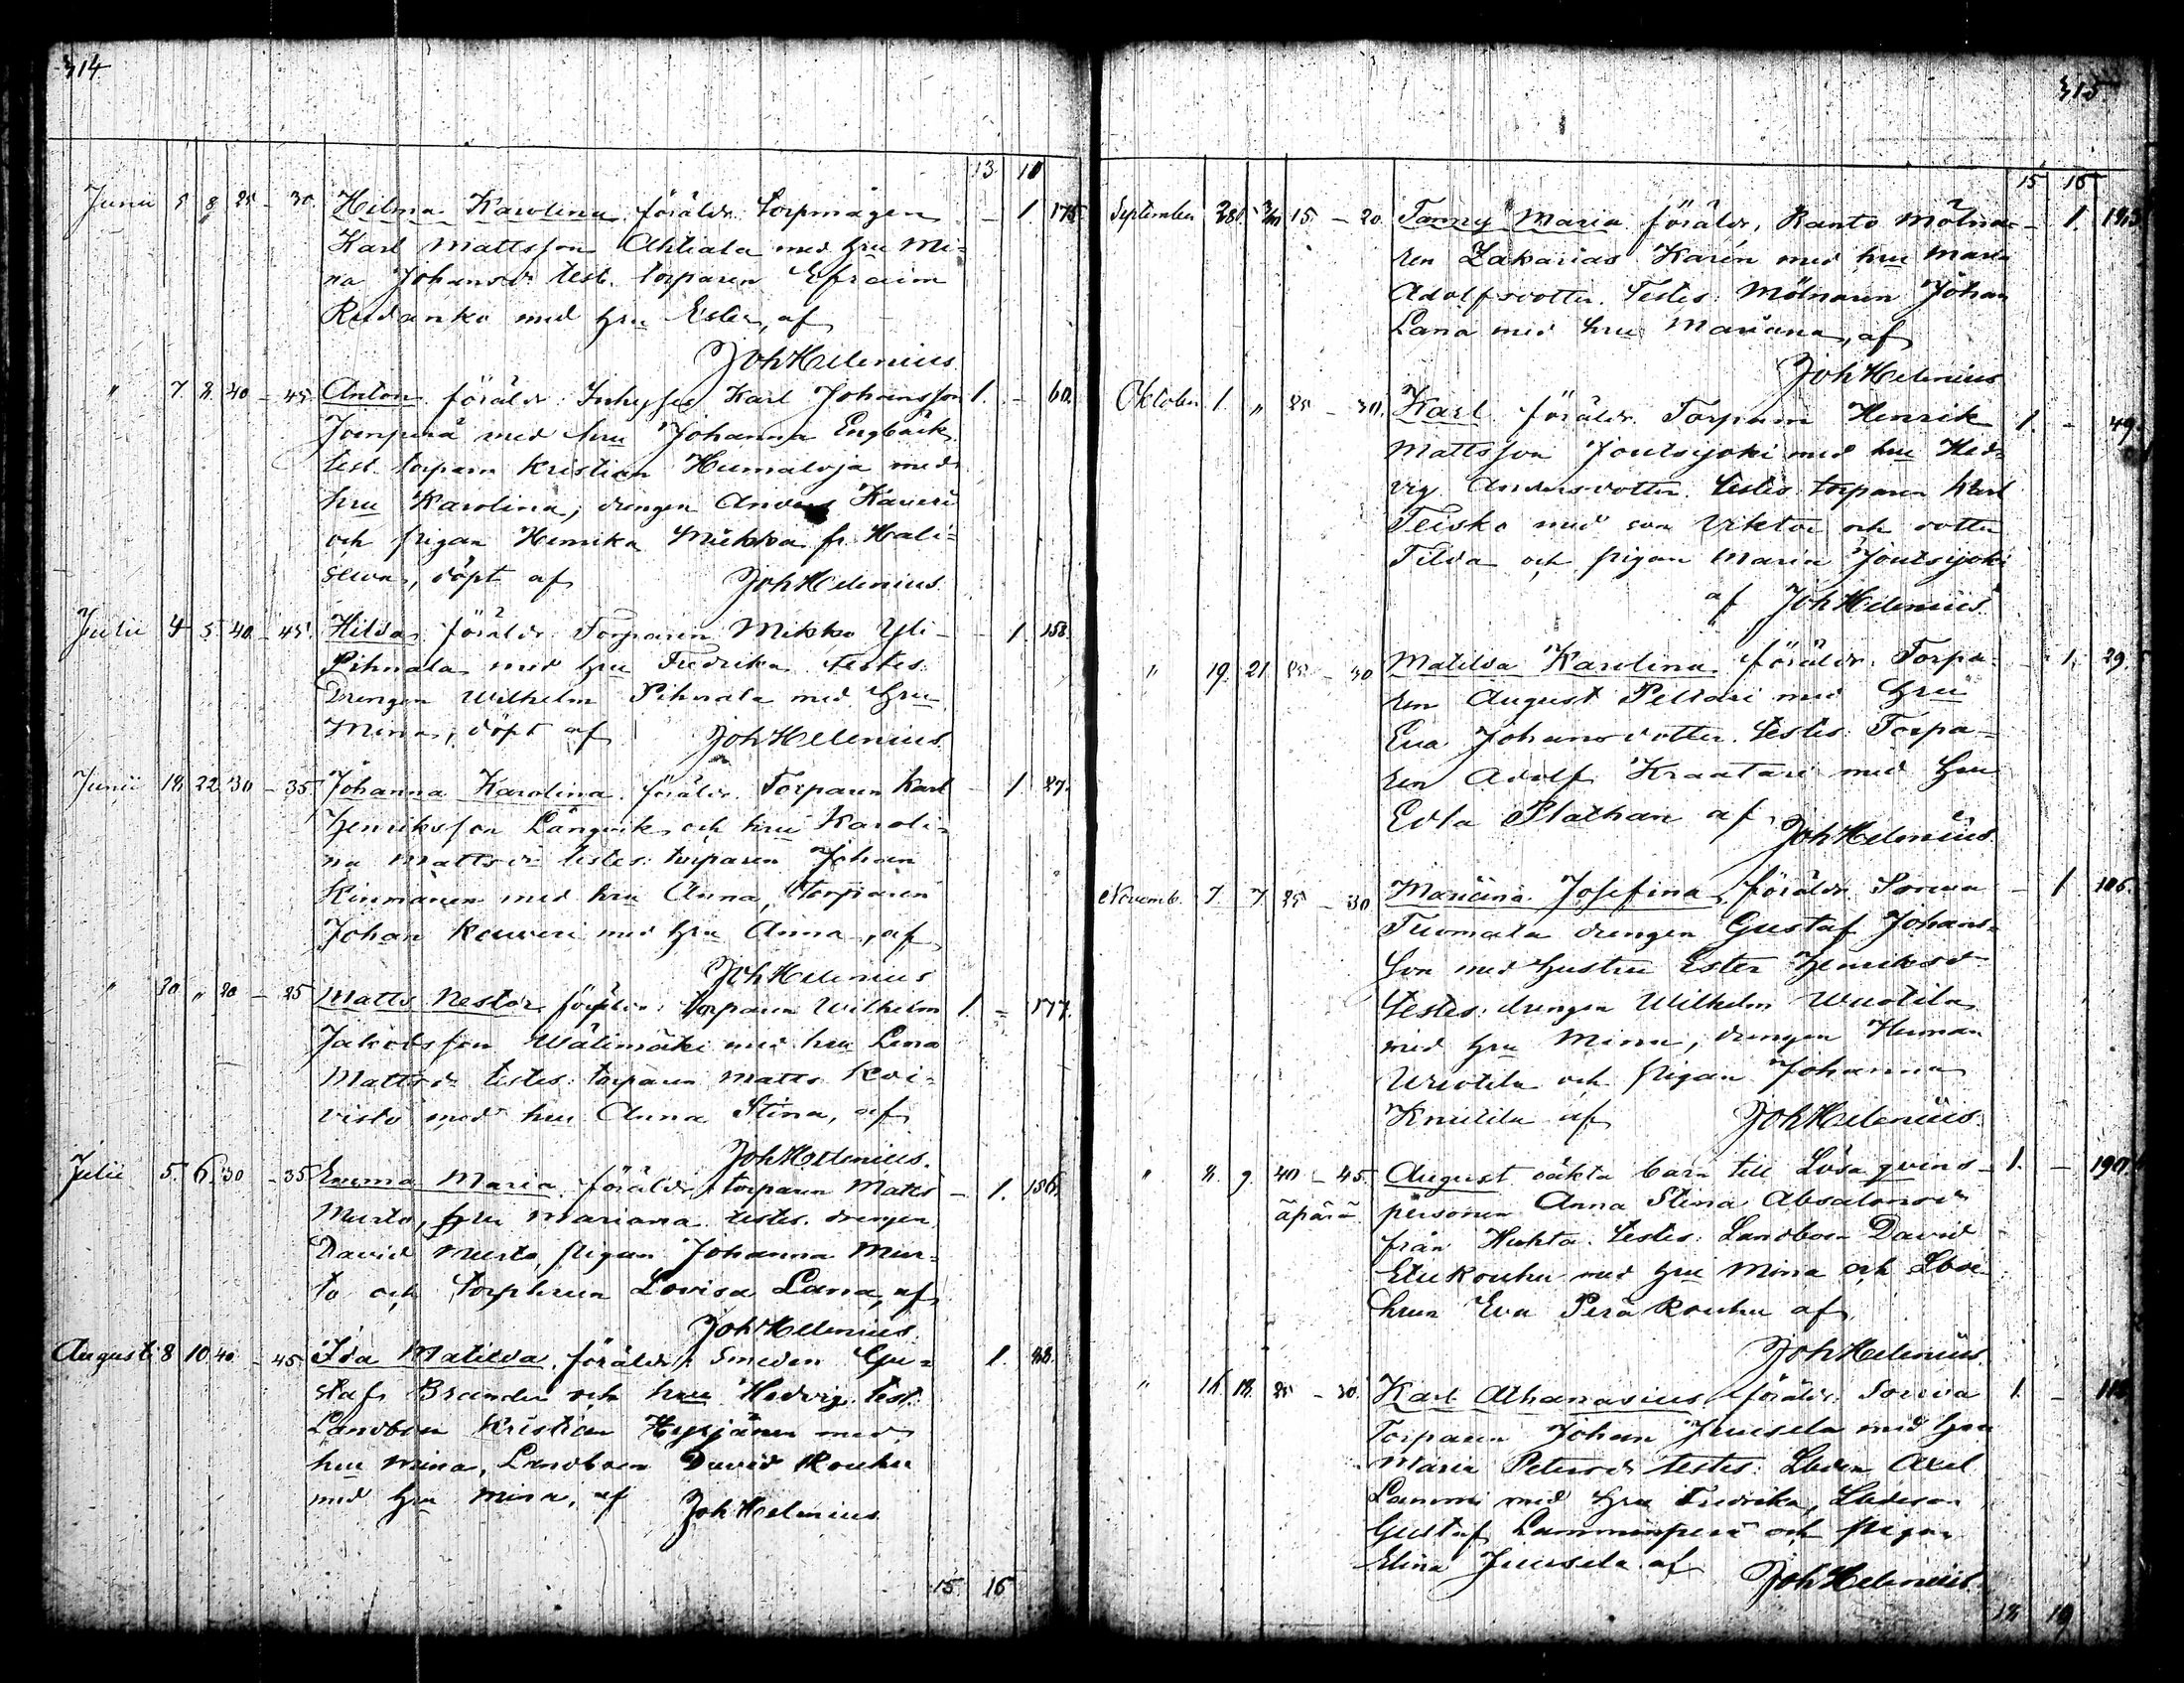 314
13 10
Junii 5 8 25 - 30. Hilma Karolina föräldr. Torpmågen - 1. 175
Karl Mattsson Ahtiala med hru Mi=
na Johansdr test. torparen Efraim
Rudanko med hru Ester, af
Joh Helenius.
" 7. 8. 40 - 45 Anton föräldr. Inhyses Karl Johansson 1. - 60.
med hru Johanna Engbäck,
test. torparn Kristian Humaloja med
hru Karolina, drengen Anders Kaveri
och pigan Henrika fr. Hali=
döpt af Joh Helenius.
Julii 4 5. 40 - 45. Hilda föräldr. Torparen Mikko Yli- - 1. 158.
Pihnala med hru Fredrika testes:
Drengen Wilhelm Pihnala med hru
Mina, döpt af Joh Helenius.
Junii 18 22 30 - 35. Johanna Karolina. föräldr. Torparen Karl - 1 27.
Henriksson Långvik och hru Karoli=
na Mattsdr testes: torparen Johan
Kinmanen med hru Anna, torparen
Johan Kouveri med hru Anna, af
Joh Helenius
" 20 " 20 - 25 Matts Nestor föräldr: torparen Wilhelm 1. - 177.
Jakobsson Wälimäki med hru Lena
Mattsdr testes: torparen Matts Koi=
visto med hru Anna Stina, af
Joh Helenius.
Julii 5. 6. 30 - 35 Emma Maria. föräldr: torparen Matts - 1. 156.
Murto, hru Mariana testes. drengen
David Murto, pigan Johanna Mur=
to och torphrun Lovisa Lana, af
Joh Helenius.
Augusti 8 10 40. - 45 Ida Matilda. föräldr: Smeden Gu=
1. 88.
staf Brander och hru Hedvig. test.
Landboen Kristian med
hru Mina, Landboen David Rouhu
med hru Mina, af Joh Helenius
15. 16
315.
15 16
September 28. 15 - 20. Fanny Maria föräldr, Kanto Mölna= - 1.
ren Zakarias Karén med hru Maria
Adolfsdotter. Testes: Mölnaren Johan
Lana med hru Mariana, af
Joh Helenius
Oktober 1. " 25 - 30. Karl föräldr. Torparn Henrik 1. - 49.
Mattsson Joutsijoki med hru Hed=
vig Andersdotter. testes: torparen Karl
Teisko med son Viktor och dotter
Tilda och pigan Maria Joutsijoki
af Joh Helenius.
" 19. 21 25 - 30 Matilda Karolina. föräldr. Torpa= - 1. 29.
ren August Peltari med hru
Eva Johansdotter. testes: Torpa=
ren Adolf Kraatari med hru
Edla Plathan af
Joh Helenius.
Novemb. 7. 7. 25 - 30. Mariana Josefina, föräldr. Sorwa - 1 106.
Tuomala drengen Gustaf Johans=
son med hustru Ester Henriksdr
testes: drengen Wilhelm Wuotila
med hru Mina, drengen Herman
Wuotila och pigan Johanna
Knuutila af Joh Helenius.
" 8. 9. 40 - 45. August oäkta barn till Lösa qvins= 1. - 190.
äpärä. personen Anna Stina Absalonsdr
från Huhta. testes: Landboen David
Etu Rouhu med hru Mina och Lboe
hrun Eva Perä Rouhu af
Joh Helenius.
" 16. 18. 25 - 30. Karl Athanasius föräldr. Sorwa 1. -
Torparen Johan Juusela med hru
Maria Petersdr testes: Lboen Axel
Lammi med hru Fredrika, Lboeson
Gustaf Lamminperä och pigan
Elina Juusela af Joh Helenius.
18. 19